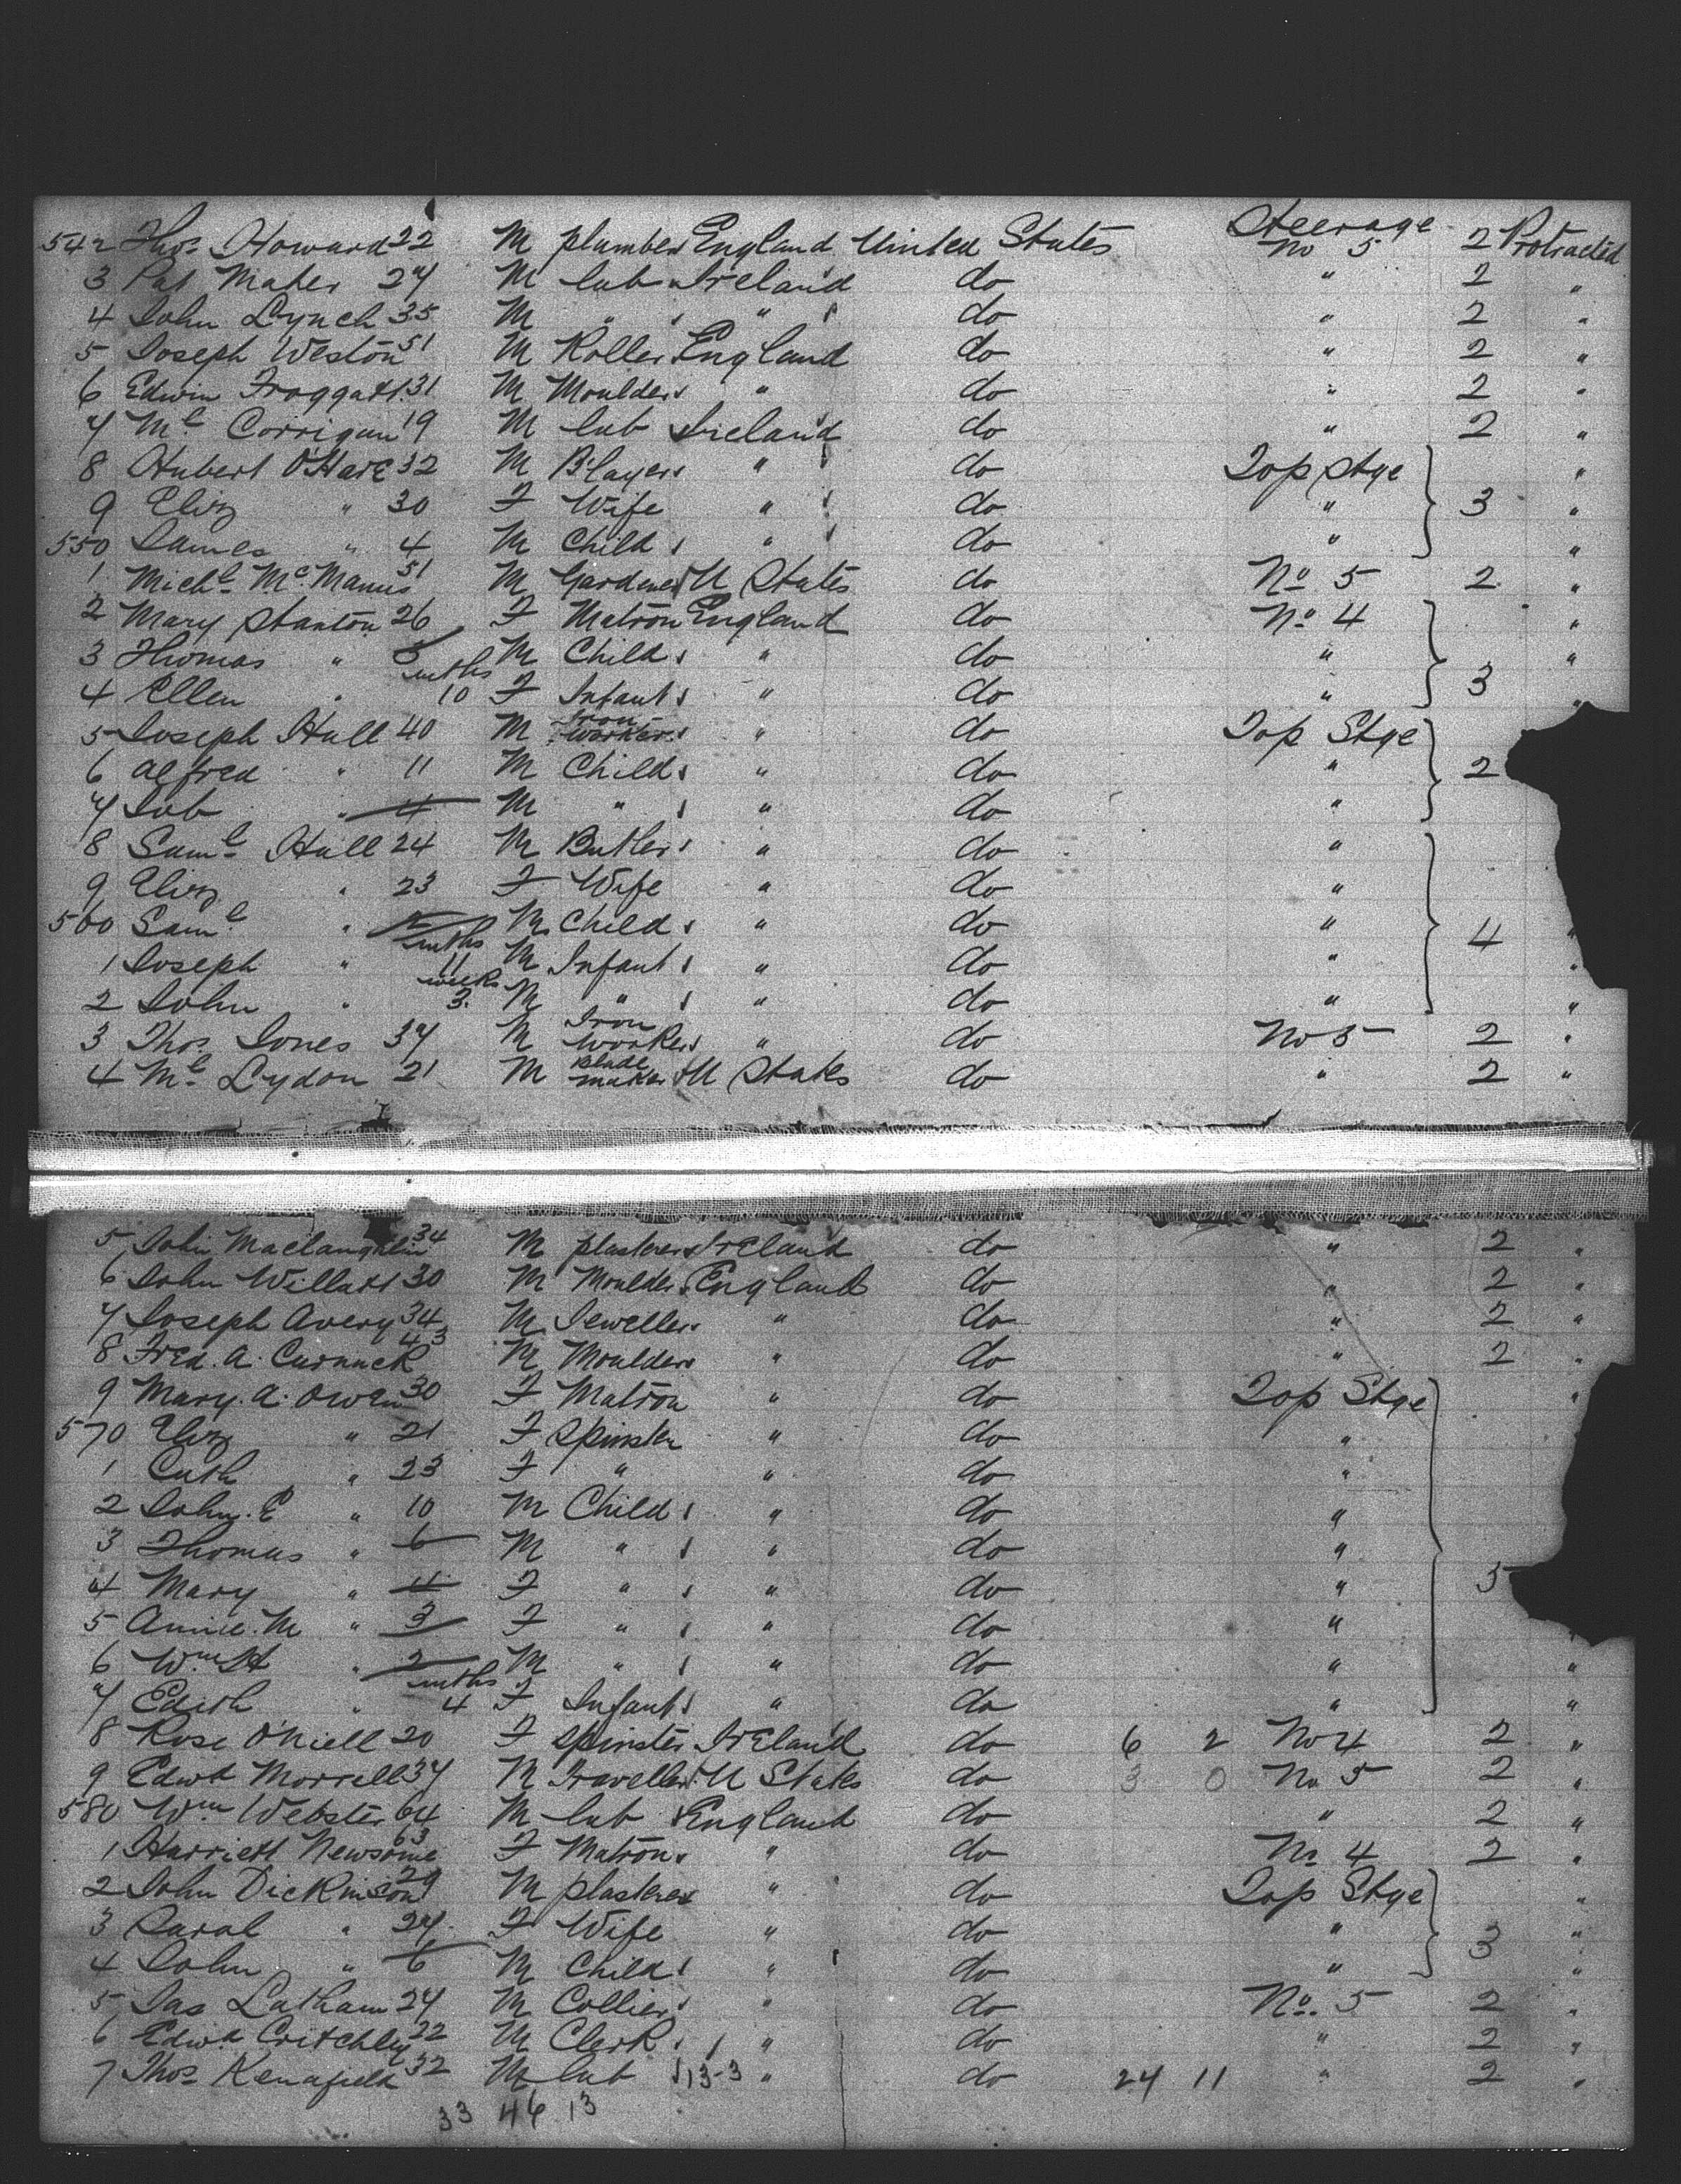 Steerage
542 Thos. Howard 22 M plumber England United States No 5 2 Protracted
3 Pat Maher 27 M lab Ireland do " 2 "
4 John Lynch 35 M " " do " 2 "
5 Joseph Weston 51 M Roller England do " 2 "
6 Edwin Froggatt 31 M Moulder " do " 2 "
7 Ml Corrigan 19 M lab Ireland do " 2 "
8 Hubert O'Hare 32 M B'layer " do Top Stge "
9 Eliz " 30 F Wife " do " 3 "
550 James " 4 M Child " do " "
1 Michl. McManus 51 M Gardner U States do No 5 2 "
2 Mary Stanton 26 F Matron England do No 4 "
3 Thomas " M Child " do " "
mths
4 Ellen " 10 F Infant " do " 3 "
5 Joseph Hall 40 M Iron worker " do Top Stge
6 Alfred " 11 M Child " do " 2
7 Job " 4 M " " do "
8 Saml. Hall 24 M Butler " do "
9 Eliz " 23 F Wife " do "
560 Saml " M Child " do " 4 "
mths
1 Joseph " 11 M Infant " do " "
weeks
2 John " 3 M " " do " "
3 Thos. Jones 37 M Iron Worker " do No 5 2 "
4 Ml. Lydon 21 M blade maker U States do " 2 "
5 John Maclaughlin 34 M plasterer Ireland do " 2 "
6 John Willatt 30 M Moulder England do " 2 "
7 Joseph Avery 34 M Jeweller " do " 2 "
8 Fred. A. Curnuck 43 M Moulder " do " 2 "
9 Mary. A. Owen 30 F Matron " do Top Stge "
570 Eliz " 21 F Spinster " do "
1 Cath " 23 F " " do "
2 John. E " 10 M Child " do "
3 Thomas " 6 M " " do "
4 Mary " 4 F " " do " 5
5 Annie. M " 3 F " " do " "
6 Wm H " 2 M " " do " "
mths
7 Edith " 4 F Infant " do " "
8 Rose O'Niell 20 F Spinster Ireland do 6 2 No 4 2 "
9 Edwd Morrell 37 M Traveller U States do 3 0 No 5 2 "
580 Wm Webster 64 M lab England do " 2 "
1 Harriett Newsome 63 F Matron " do No 4 2 "
2 John Dickinson 29 M plasterer " do Top Stge "
3 Sarah " 27 F Wife " do " 3 "
4 John " 6 M Child " do " "
5 Jas Latham 27 M Collier " do No. 5 2 "
6 Edwd Critchley 22 M Clerk " do " 2 "
7 Thos. Kenafield 32 M lab 13-3 " do 24 11 " 2 "
33 46 13